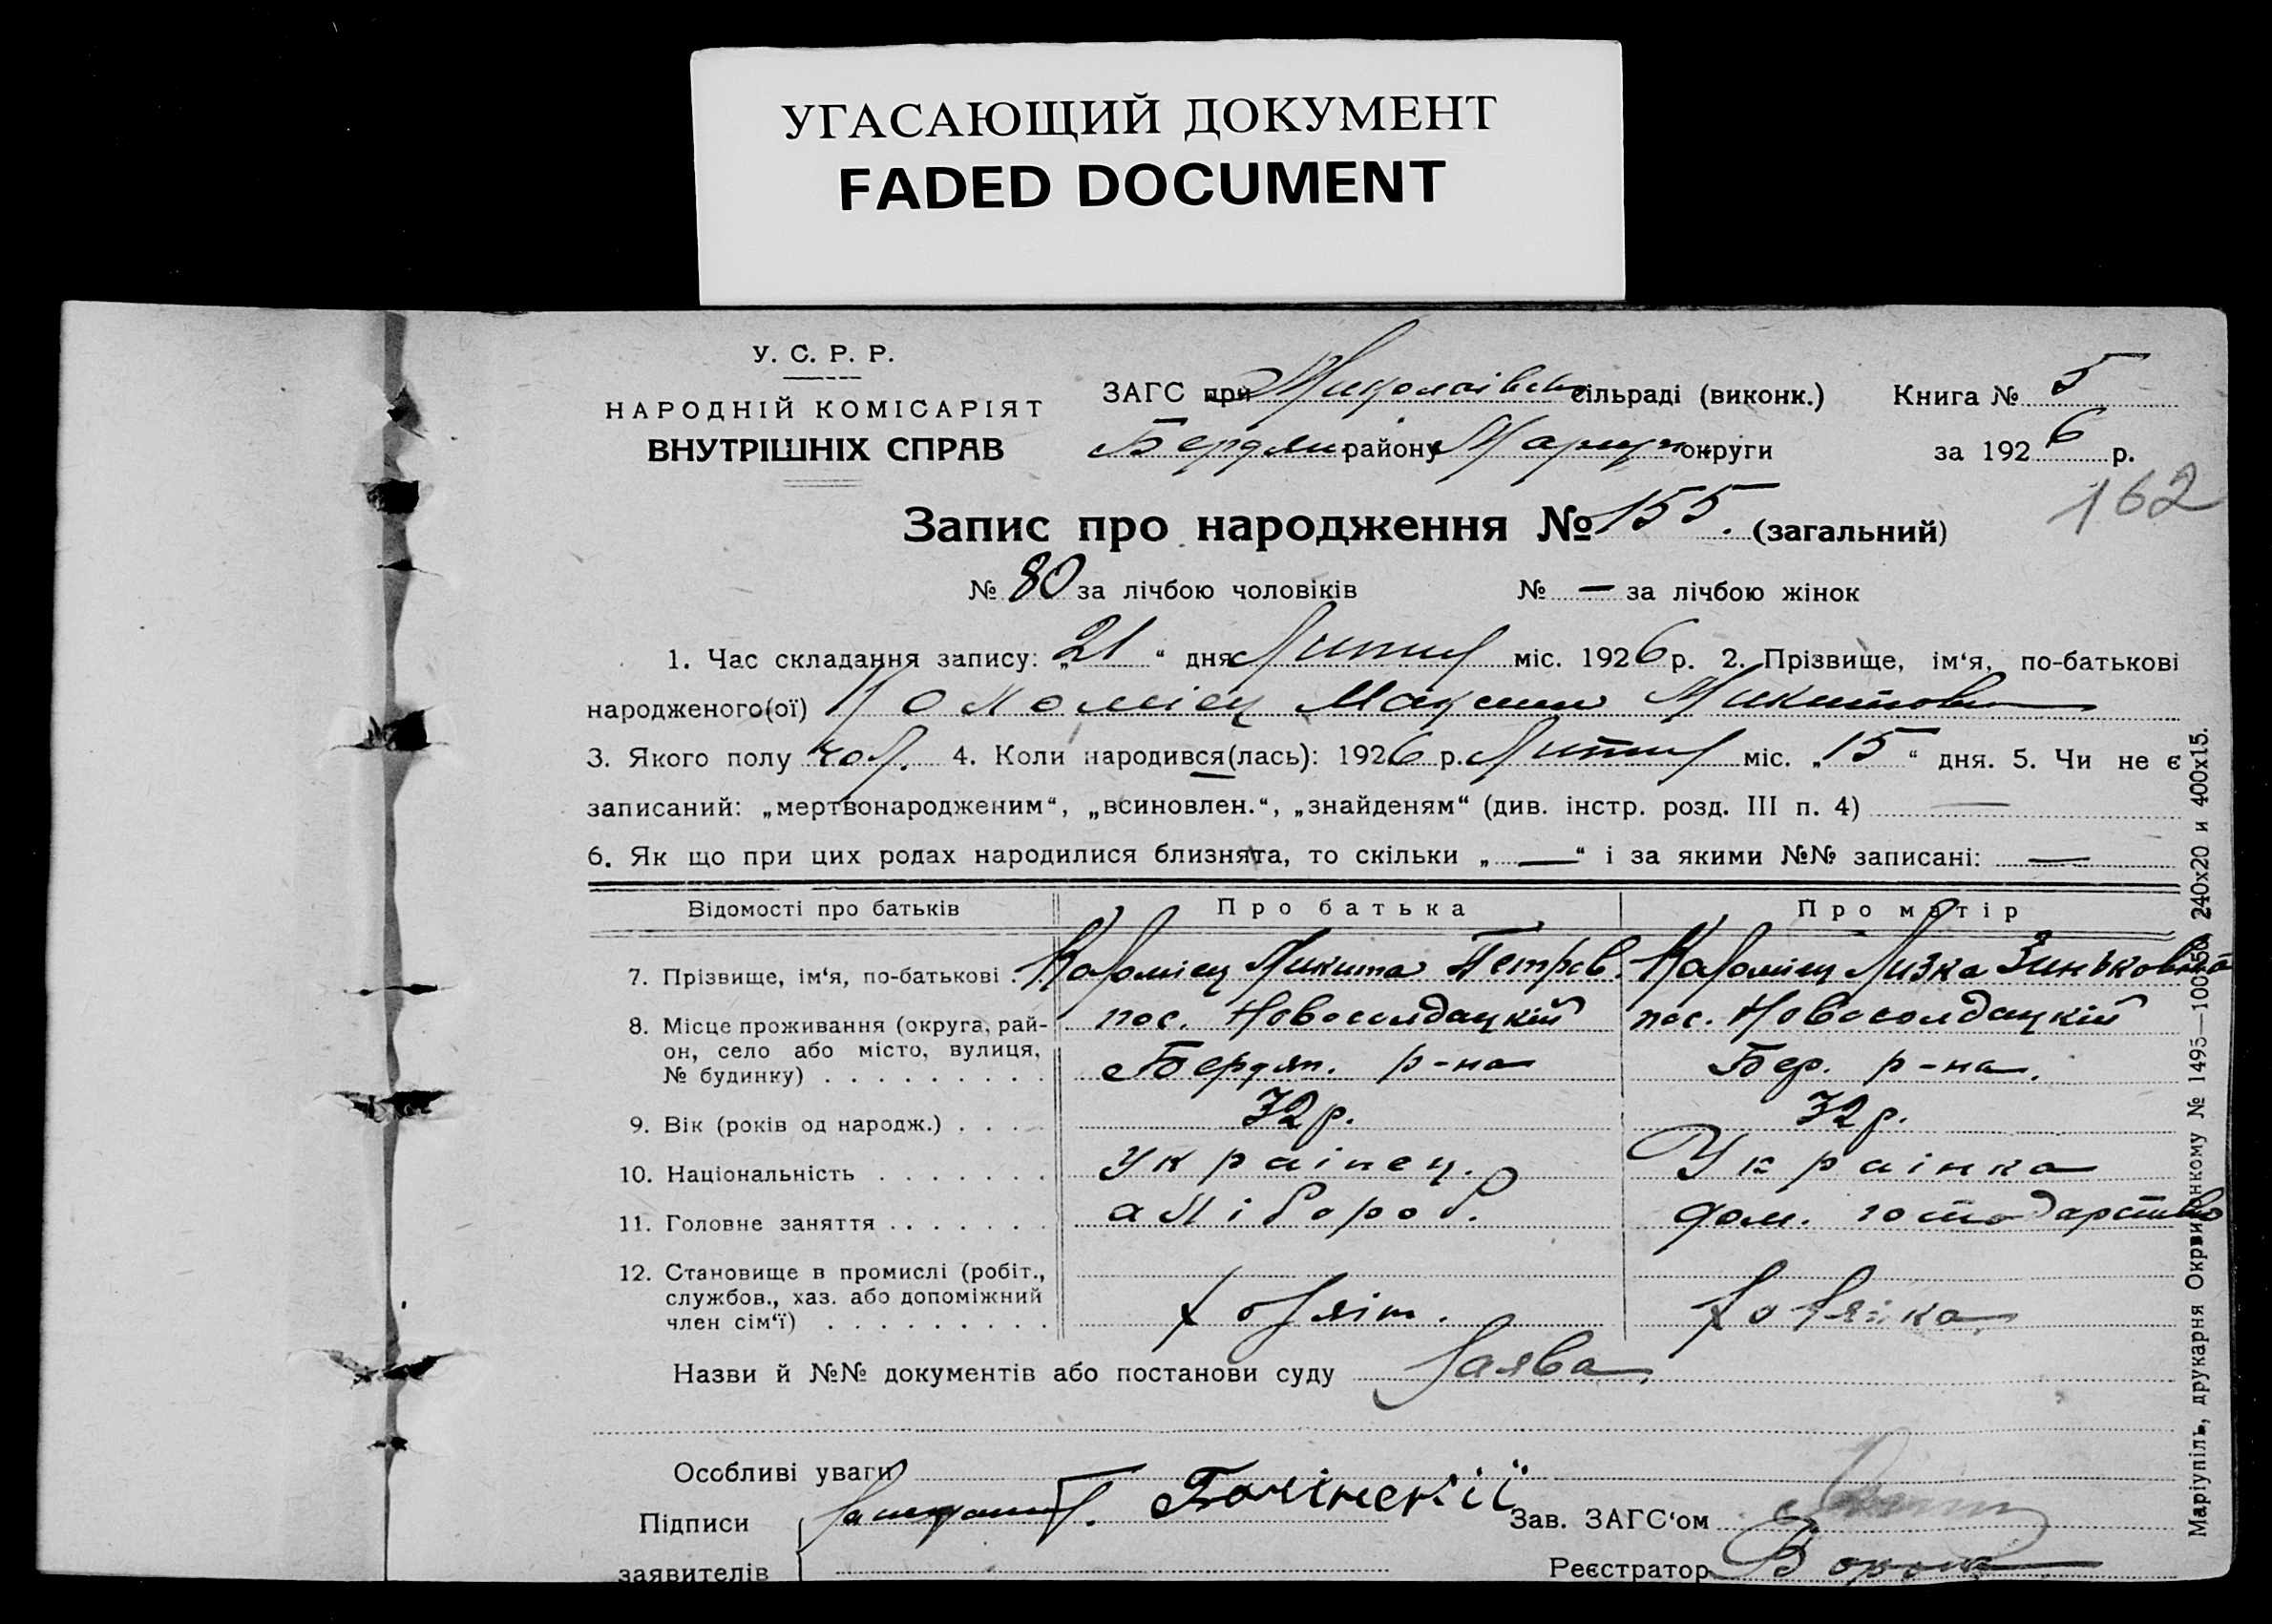 УГАСАЮЩИЙ ДОКУМЕНТ
FADED DOCUMENT
У. С. Р. Р.
НАРОДНІЙ КОМІСАРІЯТ
ВНУТРІШНІХ СПРАВ
ЗАГС при Миколаівськ сільраді (виконк.) Книга № 5
Бердян району Маріуп округи за 1926 р.
162
Запис про народження № 155. (загальний)
№ 80 за лічбою чоловіків № — за лічбою жінок
1. Час складання запису: „21“ дня Липня міс. 1926 р. 2. Прізвище, ім‘я, по-батькові
народженого(ої) Коломіец Максим Микитович
3. Якого полу чол. 4. Коли народився(лась): 1926 р. Липня міс. „15“ дня. 5. Чи не є
записаний: „мертвонародженим“, „всиновлен.“, „знайденям“ (див. інстр. розд. III п. 4) —
6. Як що при цих родах народилися близнята, то скільки „—“ і за якими №№ записані: —
Відомості про батьків Про батька Про матір
7. Прізвище, ім‘я, по-батькові . Коломіец Микита Петров. Коломіец Лизка Зиньковна
8. Місце проживання (округа, рай- пос. Новосолдацкій пос. Новосолдацкій
он, село або місто, вулиця,
№ будинку) . . . . . . . . . Бердян. р-на Бер. р-на.
9. Вік (років од народж.) . . . . 32 р. 32 р.
10. Національність . . . . . . . Украінец. Украінка
11. Головне заняття . . . . . . . хлібороб. дом. господарство
12. Становище в промислі (робіт.,
службов., хаз. або допоміжний
член сім‘ї) . . . . . . . . .
Назви й №№ документів або постанови суду Заява.
Особливі уваги
Підписи
заявителів
Зав. ЗАГС‘ом
Реєстратор
Маріупіль, друкарня Окрвиконкому № 1495—100×50, 240х20 и 400х15.